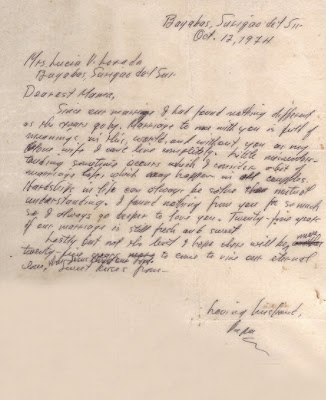 Bayabas, Surigao del Sur
Oct. 12, 1974
Mrs Lucia V. Lozada
Bayabas, Surigao del Sur
Dearest Mama,
Since our marriage I had found nothing different
as the years go by. Marriage to me with you is full of
meanings in this world, and without you as my
wife I can't live completely. Little misunder-
tanding sometimes occurs which I consider a bit
marriage, which may happen in all couples.
Hardships in life you always be mutual
understanding. I found nothing from you so much
so I always go deeper to love you. Twenty-five years
of our marriage is still fresh and sweet
Lastly but not the least I hope there will be many
twenty-five years to come to our eternal
love. Sweet kisses from-
Loving husband,
Papa